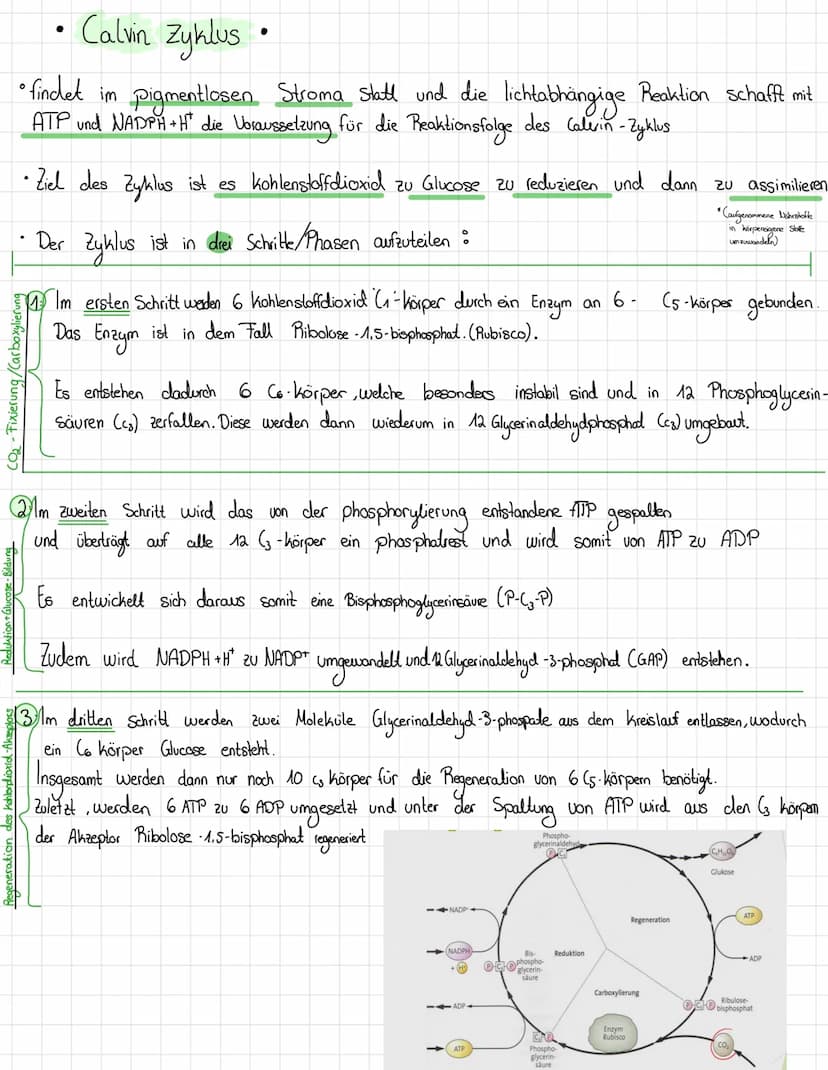 • Calvin Zyklus •
• findet im pigmentlosen Stroma statt und die lichtabhängige Reaktion schafft mit
ATP und NADPH+H⁺ die Voraussetzung für die Reaktionsfolge des Calvin-Zyklus
• Ziel des Zyklus ist es Kohlenstoffdioxid zu Glucose zu reduzieren und dann zu assimilieren
*(aufgenommene Nährstoffe
in körpereigene Stoffe
umzuwandeln)
• Der Zyklus ist in drei Schritte/Phasen aufzuteilen:
CO₂-Fixierung/Carboxylierung
1. Im ersten Schritt werden 6 Kohlenstoffdioxid C₁-körper durch ein Enzym an 6 - C5-körper gebunden.
Das Enzym ist in dem Fall Ribolose-1,5-bisphosphat.(Rubisco).
Es entstehen dadurch 6 C6-körper, welche besonders instabil sind und in 12 Phosphoglycerin-
säuren (C₃) zerfallen. Diese werden dann wiederum in 12 Glycerinaldehydphosphat (C₃) umgebaut.
Reduktion+Glucose-Bildung
2. Im zweiten Schritt wird das von der phosphorylierung entstandene ATP gespalten
und überträgt auf alle 12 C₃-körper ein phosphatrest und wird somit von ATP zu ADP
Es entwickelt sich daraus somit eine Bisphosphoglycerinsäure (P-C₃-P)
Zudem wird NADPH+H⁺ zu NADP⁺ umgewandelt und 12 Glycerinaldehyd-3-phosphat (GAP) entstehen.
Regeneration des Kohlendioxid-Akzeptors
3. Im dritten Schritt werden zwei Moleküle Glycerinaldehyd-3-phospate aus dem Kreislauf entlassen, wodurch
ein C6 körper Glucose entsteht.
Insgesamt werden dann nur noch 10 C₃ körper für die Regeneration von 6 C5-körpern benötigt.
Zuletzt, werden 6 ATP zu 6 ADP umgesetzt und unter der Spaltung von ATP wird aus den C₃ körpern
der Akzeptor Ribolose-1.5-bisphosphat regeneriert
Phospho-
glycerinaldehyd
P C₃
C₆H₁₂O₆
Glukose
NADP⁺
Regeneration
ATP
NADPH
+ H⁺
P C₃ P
Bis-
phospho-
glycerin-
säure
Reduktion
ADP
Carboxylierung
P C₅ P
Ribulose-
bisphosphat
ADP
Enzym
Rubisco
C₃ P
CO₂
ATP
Phospho-
glycerin-
säure